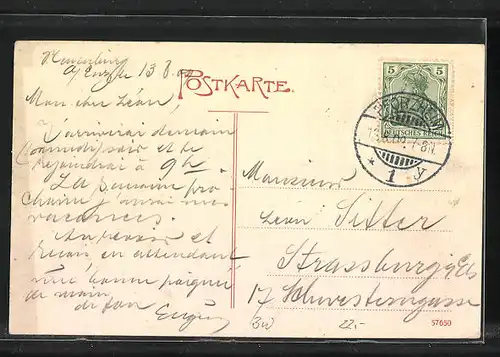 a/Enz le 13.8.
POSTKARTE.
Mon cher Léon,
J'arriverai demain
(samedi) soir et te
rejoindrai à 9h
La semaine pro
chaine j'aurai mes
vacances.
Au revoir et
en attendant
une bonne poignée
de main
de ton
Eugène
5 5
DEUTSCHES REICH
PFORZHEIM
7-8N.
* 1
Monsieur
Léon Sitter
Strassburg i/Els
17 Schwesterngasse
BW 22.-
57650